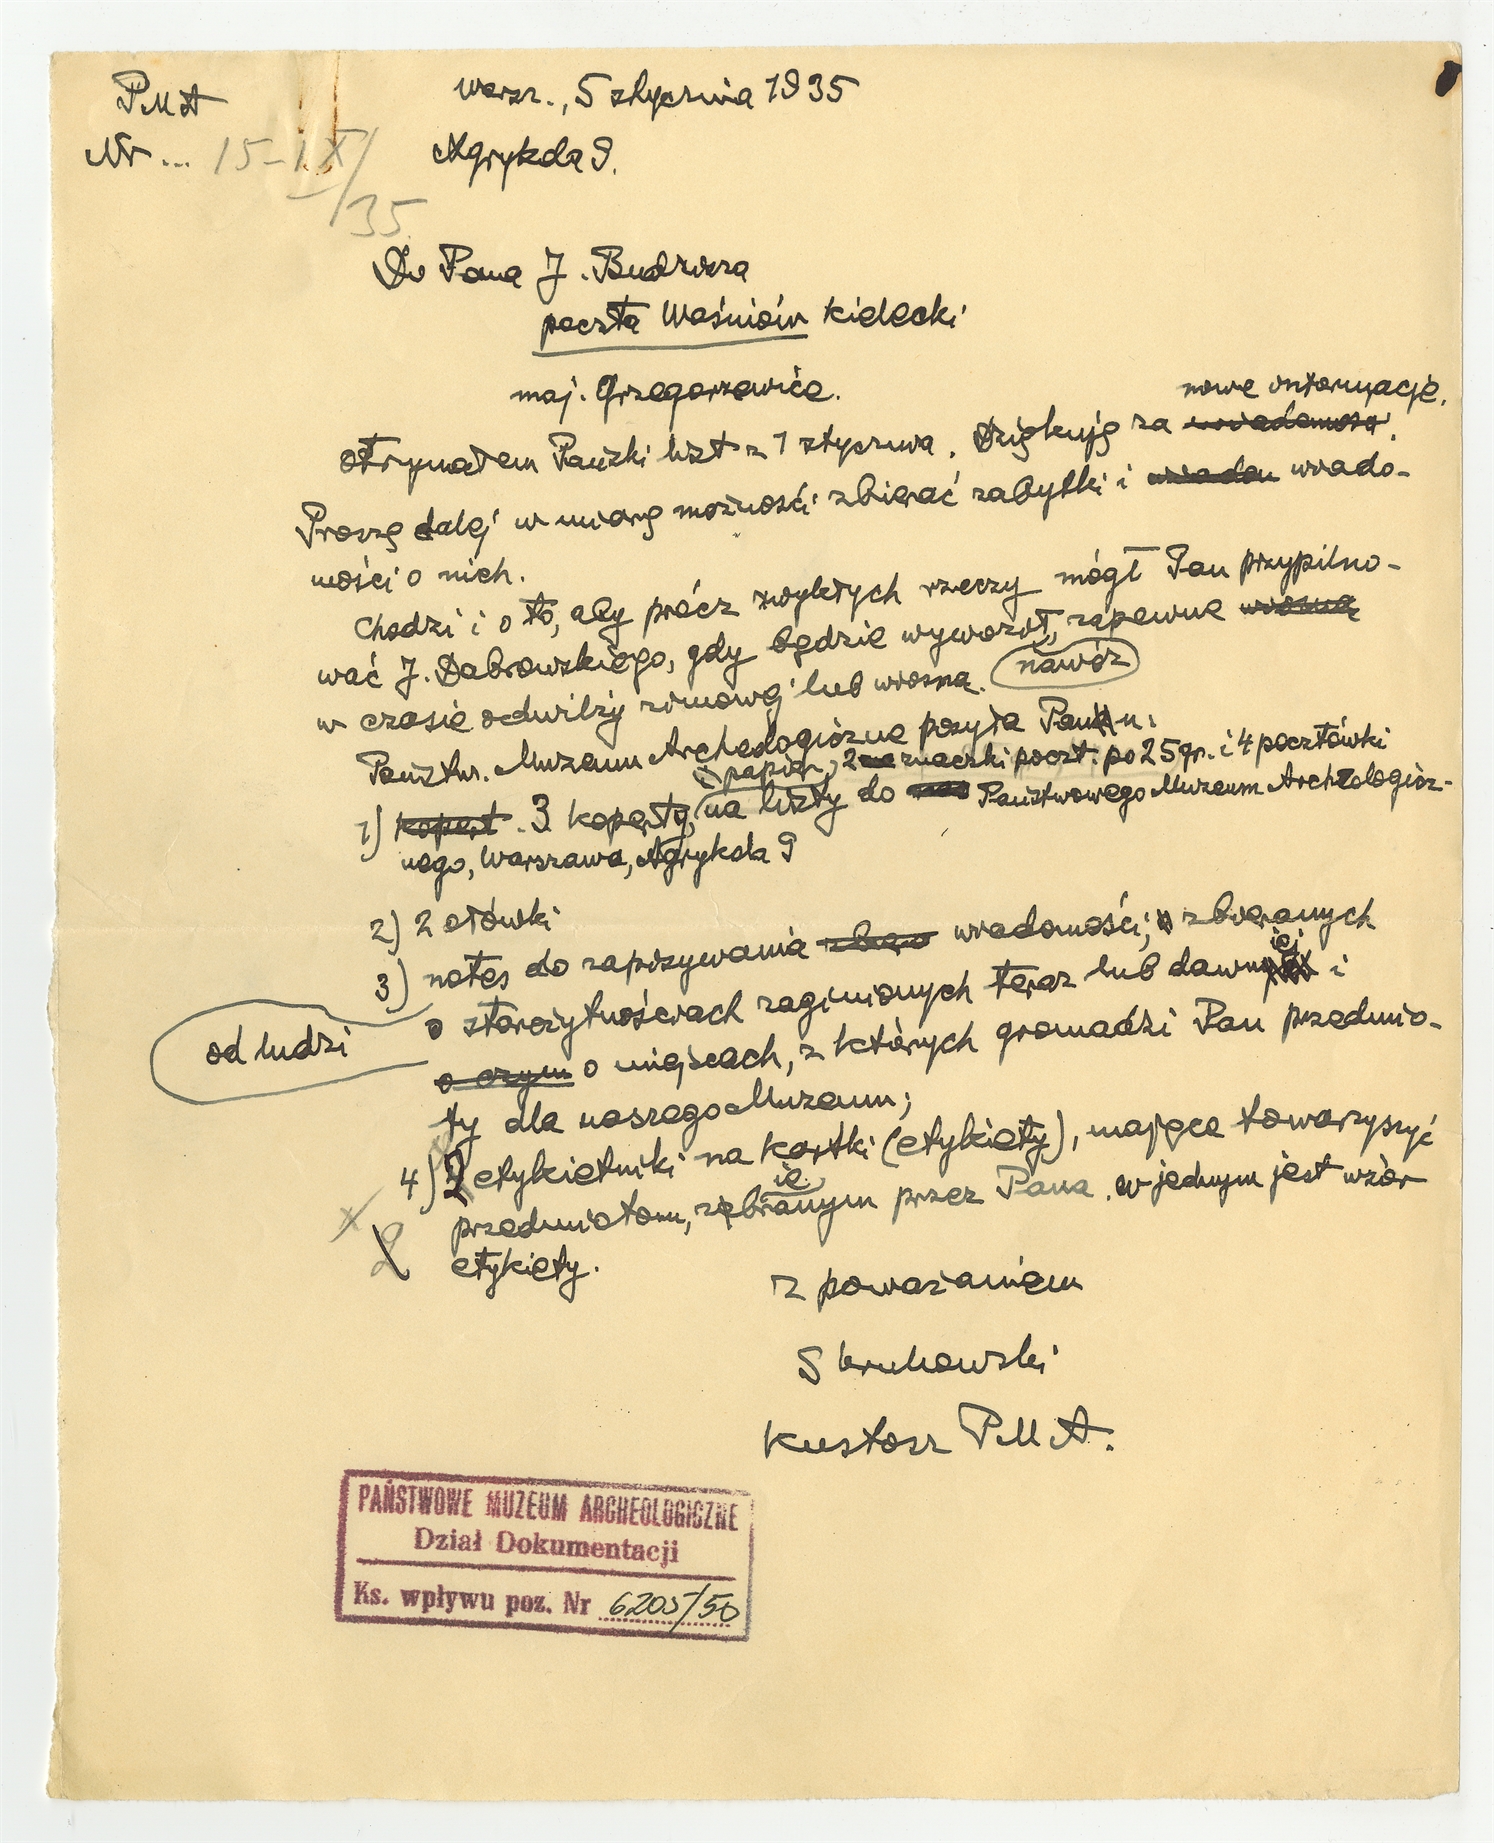 PMA
Warsz., 5 stycznia 1935
Nr ... 15-IX/35
Agrykola 9.
Do Pana J. Budzisza
poczta Waśniów kielecki
maj. Grzegorzewice.
nowe informacje.
Otrzymałem Pański list z 1 stycznia. Dziękuję za wiadomości.
Proszę dalej w miarę możności zbierać zabytki i wiadom wiado-
mości o nich.
Chodzi i o to, aby prócz zwykłych rzeczy mógł Pan przypilno-
wać J. Dabrowskiego, gdy będzie wyworził, zapewne wiosną
nawóz
w czasie odwilży zimowej lub wiosną.
Państw. Muzeum Archeologiczne posyła Panu:
i papier, 2 znaczki poczt. po 25 gr. i 4 pocztówki
1) kopert. 3 koperty, na listy do Państwowego Muzeum Archeologicz-
nego, Warszawa, Agrykola 9
2) 2 ołówki
3) notes do zapisywania wiadomości, zbieranych
od ludzi
o starożytnościach zaginionych teraz lub dawniej i
o czym o miejscach, z których gromadzi Pan przedmio-
ty dla naszego Muzeum;
4) 2 etykietniki na kartki (etykiety), mające towarzyszyć
przedmiotom, zebranym przez Pana. W jednym jest wzór
x 2
etykiety.
Z poważaniem
S Krukowski
Kustosz PMA.
PAŃSTWOWE MUZEUM ARCHEOLOGICZNE
Dział Dokumentacji
Ks. wpływu poz. Nr 6205/50